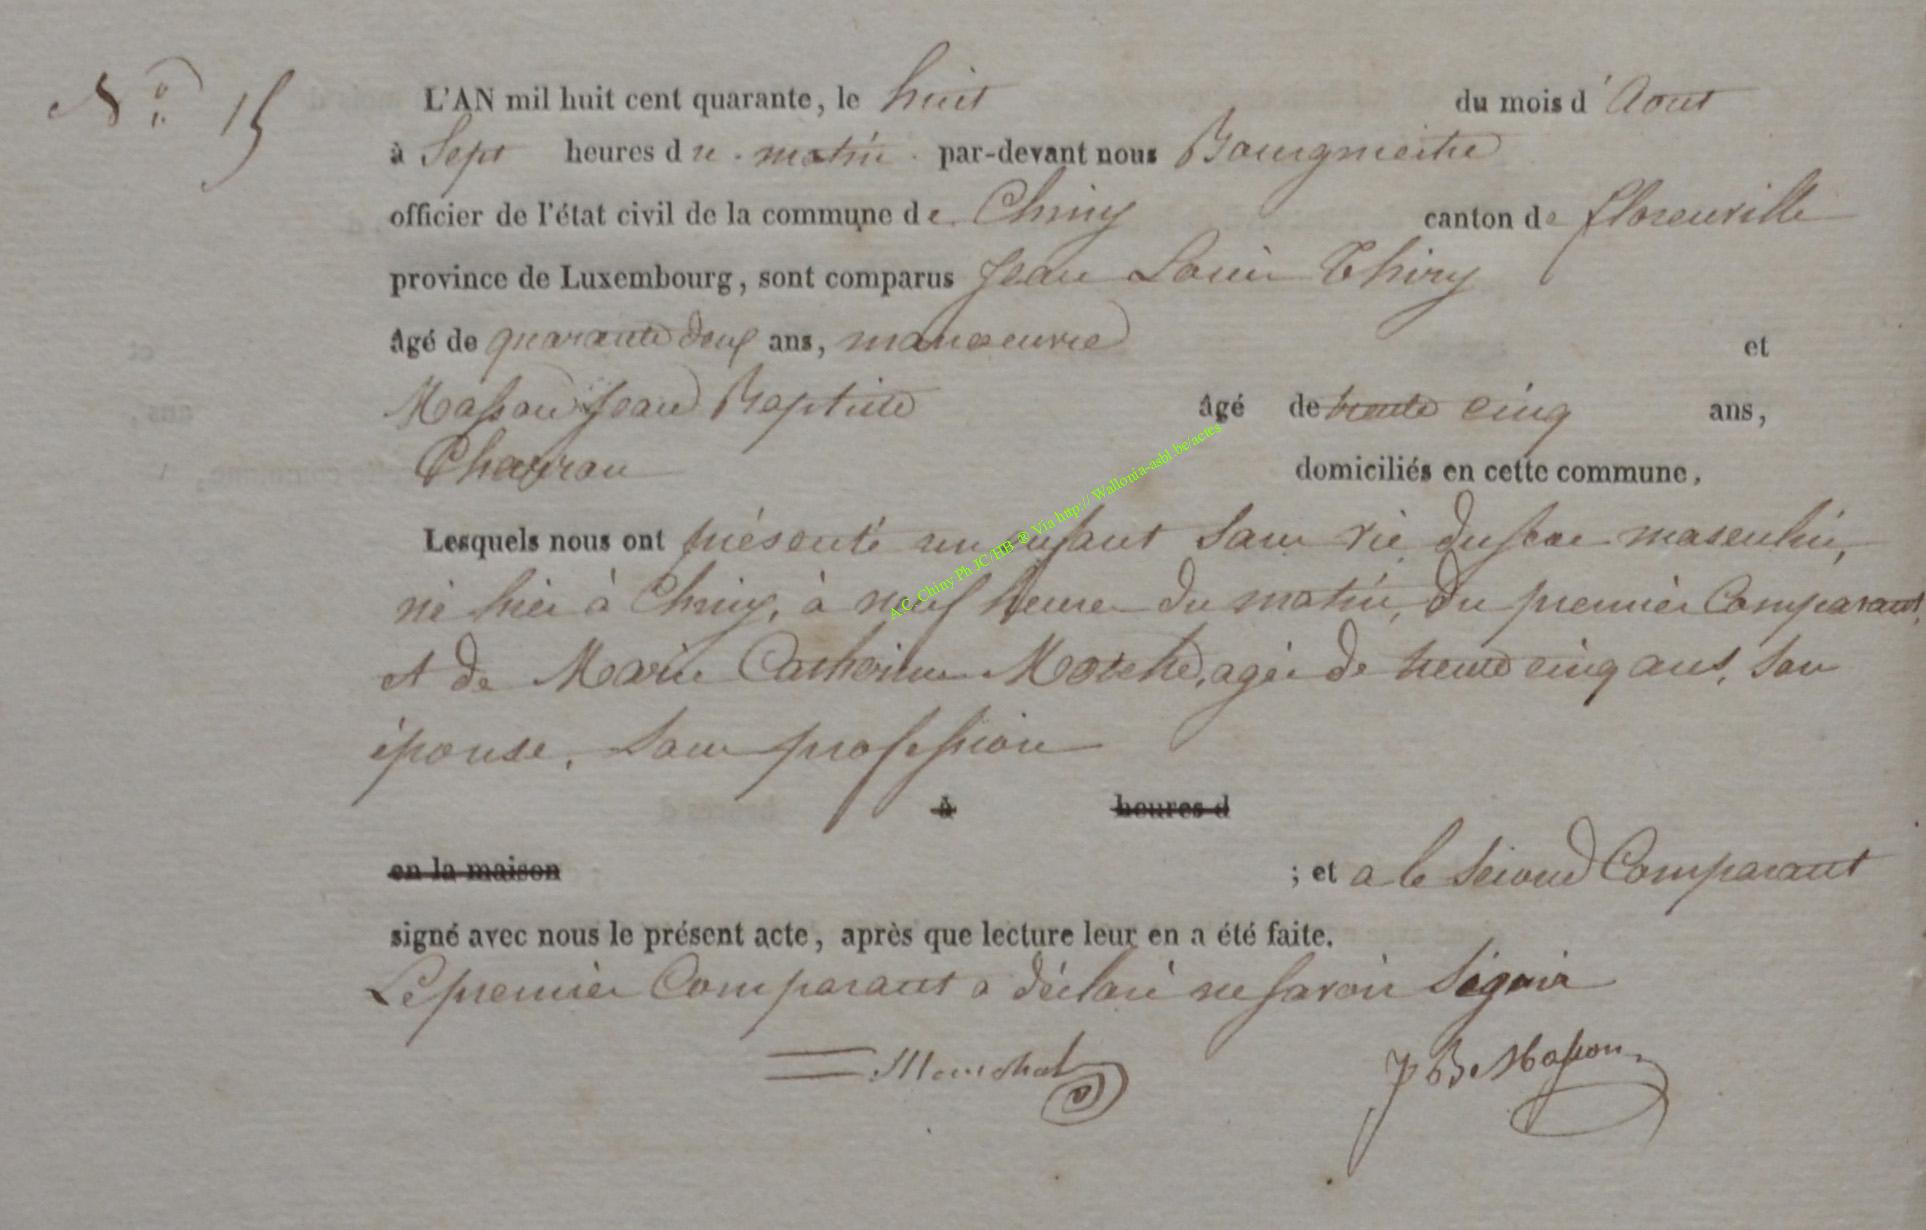 N.o 15
L'AN mil huit cent quarante, le huit du mois d'Aout
à Sept heures du matin par-devant nous Bourgmestre
officier de l'état civil de la commune de Chiny canton de florenville
province de Luxembourg, sont comparus Jean Louis Thiry
âgé de quarante deux ans, manoeuvre et
Masson Jean Baptiste âgé de trente cinq ans,
Charron domiciliés en cette commune,
Lesquels nous ont présenté un enfant sans vie du sexe masculin,
né hier à Chiny, à neuf heures du matin, du premier Comparant,
et de Marie Catherine agée de trente cinq ans, son
épouse, sans profession
à heures d
en la maison ; et a le second Comparant
signé avec nous le présent acte, après que lecture leur en a été faite.
Le premier Comparant a déclaré ne savoir signer
J B Masson
A.C. Chiny Ph JC/HB ® Via http:// Wallonia-asbl.be/actes